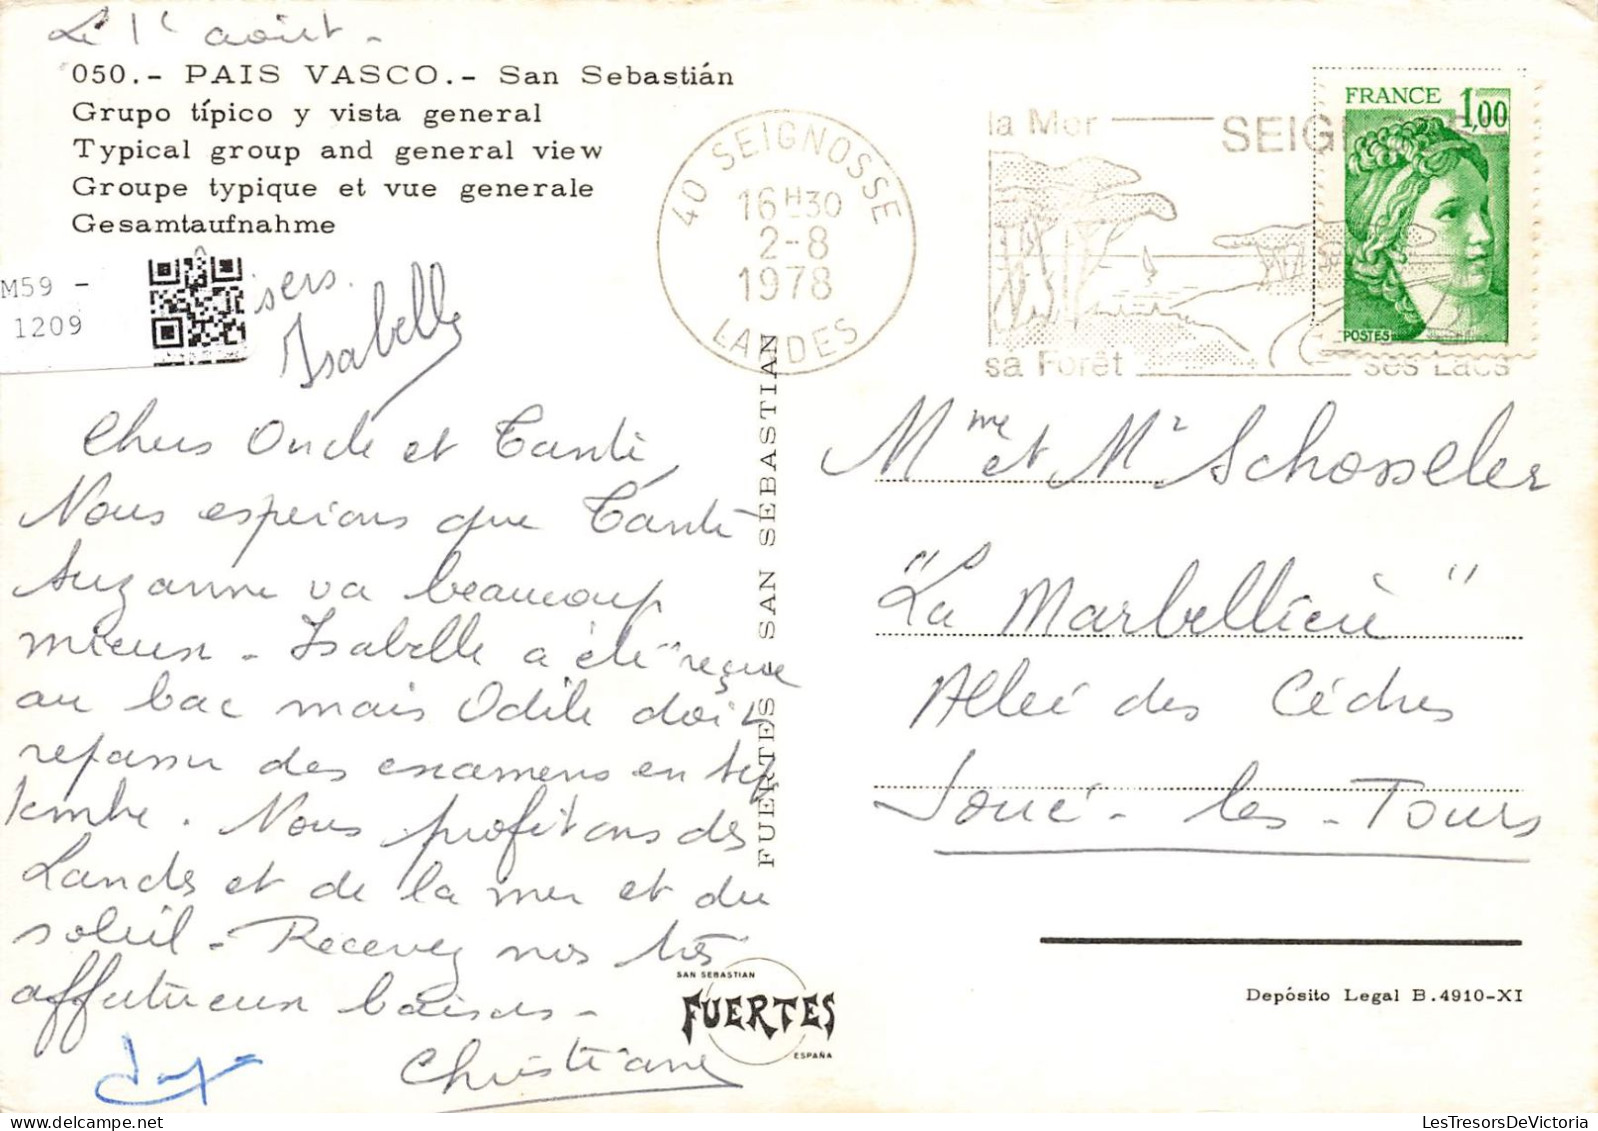 Le 1er août -
050.- PAIS VASCO.- San Sebastián
Grupo típico y vista general
Typical group and general view
Groupe typique et vue generale
Gesamtaufnahme
M59 -
1209
Isabelle
40 SEIGNOSSE
16H30
2-8
1978
LANDES
la Mer
sa Forêt
ses Lacs
FRANCE 1,00
POSTES
Chers Oncle et Tante,
Nous espérons que Tante
Suzanne va beaucoup
mieux - Isabelle a été reçue
au bac mais Odile doit
repasser des examens en sep
tembre. Nous profitons des
Landes et de la mer et du
soleil - Recevez nos très
affectueux baisers -
Christiane
FUERTES SAN SEBASTIAN
SAN SEBASTIAN
FUERTES
ESPAÑA
Mme et Mr Schosseler
"La Marbellière"
Allée des Cèdres
Joué - les - Tours
Depósito Legal B.4910-XI
LesTresorsDeVictoria.com